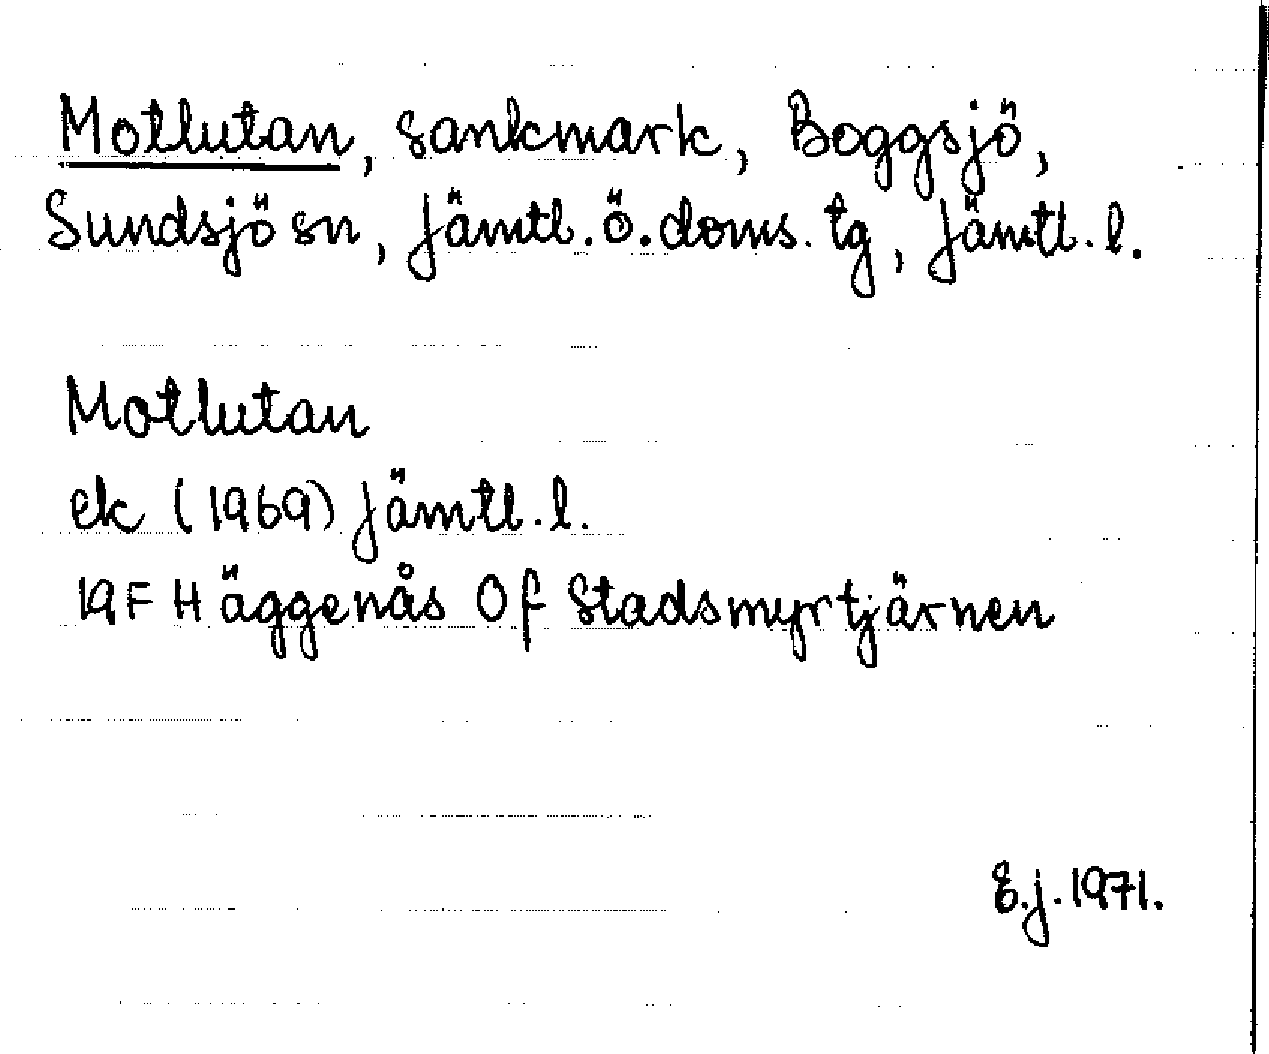 Motlutan, sankmark, Boggsjö,
Sundsjö sn, Jämtl.ö.doms.tg, Jämtl.l.
Motlutan
ek (1969) Jämtl.l.
19F Häggenås 0f Stadsmyrtjärnen
E.J.1971.